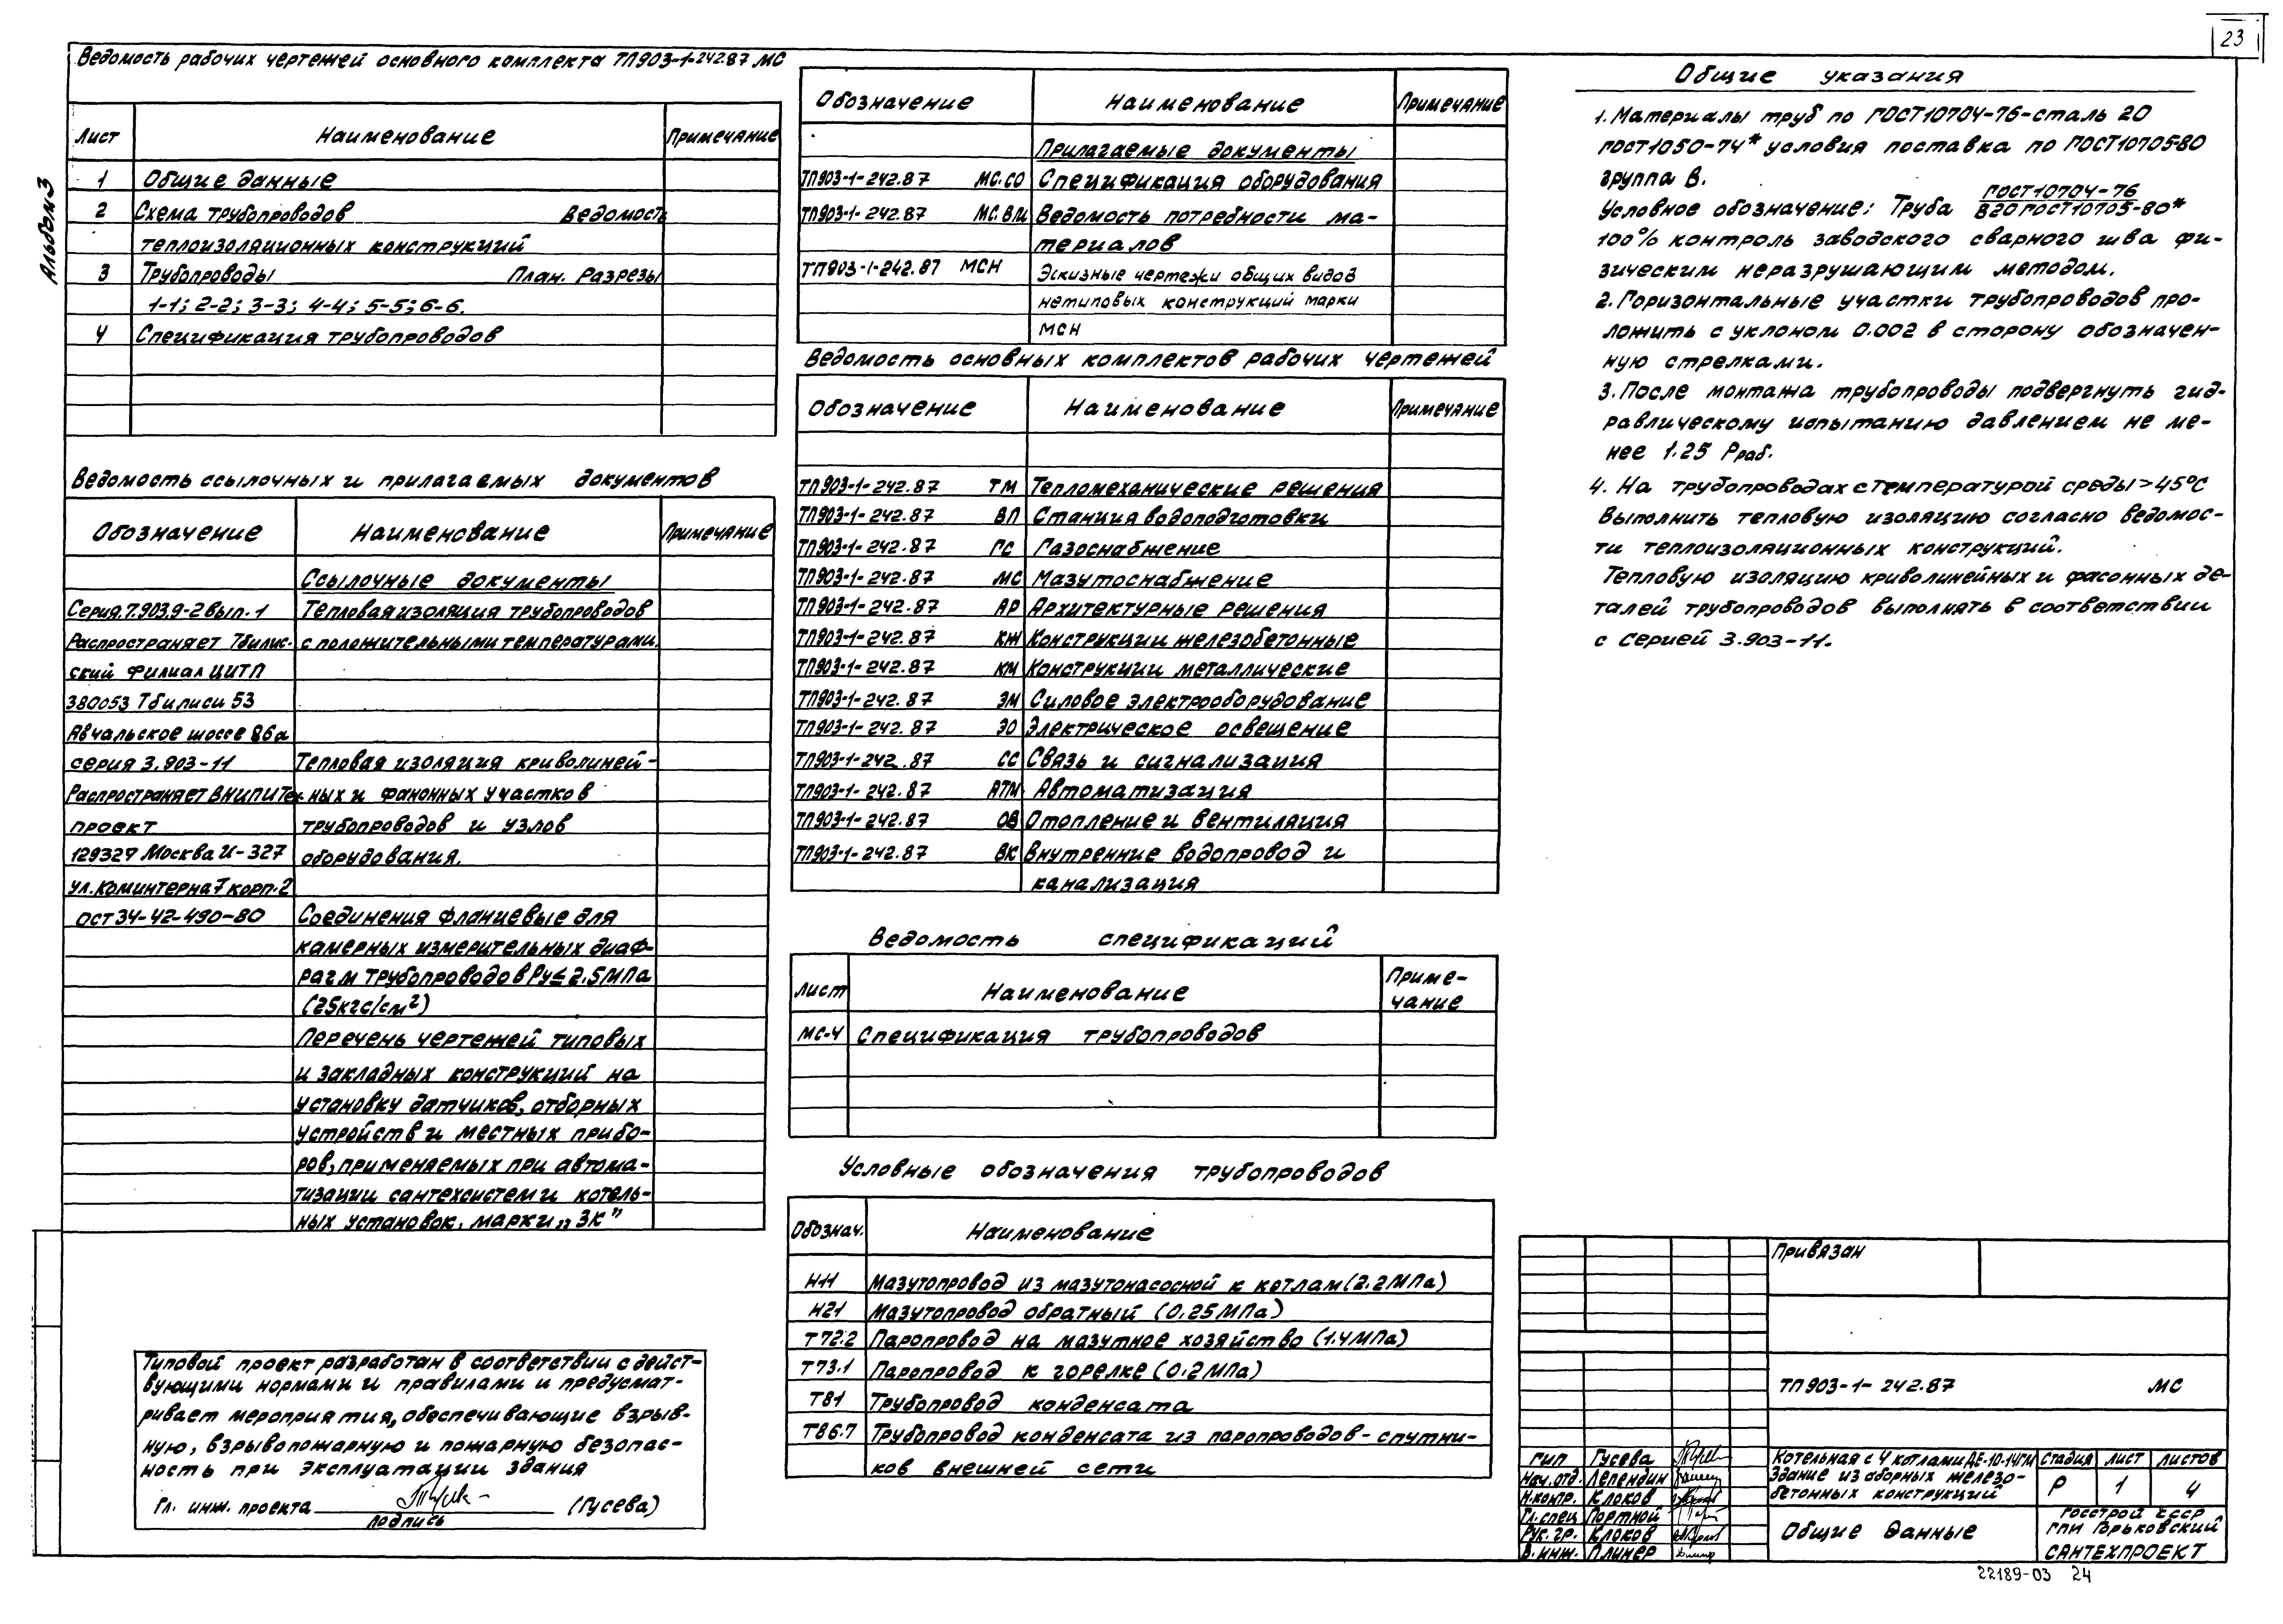 23
Альбом 3
Ведомость рабочих чертежей основного комплекта ТП903-1-242.87 МС
Лист Наименование Примечание
1 Общие данные
2 Схема трубопроводов Ведомость
теплоизоляционных конструкций
3 Трубопроводы План. Разрезы
1-1; 2-2; 3-3; 4-4; 5-5; 6-6.
4 Спецификация трубопроводов
Ведомость ссылочных и прилагаемых документов
Обозначение Наименование Примечание
Ссылочные документы
Серия.7.903.9-2 вып.1 Тепловая изоляция трубопроводов
Распространяет Тбилис- с положительными температурами.
ский филиал ЦИТП
380053 Тбилиси 53
Авчальское шоссе 86а
серия 3.903-11 Тепловая изоляция криволиней-
Распространяет ВНИПИТеп- ных и фанонных участков
проект трубопроводов и узлов
129327 Москва И-327 оборудования.
ул. Коминтерна 7 корп.2
ОСТ 34-42-490-80 Соединения фланцевые для
камерных измерительных диаф-
рагм трубопроводов Ру≤2.5МПа
(25кгс/см²)
Перечень чертежей типовых
и закладных конструкций на
установку датчиков, отборных
устройств и местных прибо-
ров, применяемых при автома-
тизации сантехсистем и котель-
ных установок, марки „ЗК"
Типовой проект разработан в соответствии с дейст-
вующими нормами и правилами и предусмат-
ривает мероприятия, обеспечивающие взрыв-
ную, взрывопожарную и пожарную безопас-
ность при эксплуатации здания
Гл. инж. проекта (Гусева)
подпись
Обозначение Наименование Примечание
Прилагаемые документы
ТП903-1-242.87 МС.СО Спецификация оборудования
ТП903-1-242.87 МС.ВМ Ведомость потребности ма-
териалов
ТП903-1-242.87 МСН Эскизные чертежи общих видов
нетиповых конструкций марки
МСН
Ведомость основных комплектов рабочих чертежей
Обозначение Наименование Примечание
ТП903-1-242.87 ТМ Тепломеханические решения
ТП903-1-242.87 ВП Станция водоподготовки
ТП903-1-242.87 ГС Газоснабжение
ТП903-1-242.87 МС Мазутоснабжение
ТП903-1-242.87 АР Архитектурные решения
ТП903-1-242.87 КЖ Конструкции железобетонные
ТП903-1-242.87 КМ Конструкции металлические
ТП903-1-242.87 ЭМ Силовое электрооборудование
ТП903-1-242.87 ЭО Электрическое освещение
ТП903-1-242.87 СС Связь и сигнализация
ТП903-1-242.87 АТМ Автоматизация
ТП903-1-242.87 ОВ Отопление и вентиляция
ТП903-1-242.87 ВК Внутренние водопровод и
канализация
Ведомость спецификаций
Лист Наименование Приме-
чание
МС-4 Спецификация трубопроводов
Условные обозначения трубопроводов
Обознач. Наименование
Н11 Мазутопровод из мазутонасосной к котлам (2.2МПа)
Н21 Мазутопровод обратный (0.25МПа)
Т72.2 Паропровод на мазутное хозяйство (1.4МПа)
Т73.1 Паропровод к горелке (0.2МПа)
Т81 Трубопровод конденсата
Т86.7 Трубопровод конденсата из паропроводов-спутни-
ков внешней сети
Общие указания
1. Материалы труб по ГОСТ10704-76-сталь 20
ГОСТ1050-74* условия поставка по ГОСТ10705-80
группа В.
Условное обозначение: Труба ГОСТ10704-76
В20 ГОСТ10705-80*
100% контроль заводского сварного шва фи-
зическим неразрушающим методом.
2. Горизонтальные участки трубопроводов про-
ложить с уклоном 0.002 в сторону обозначен-
ную стрелками.
3. После монтажа трубопроводы подвергнуть гид-
равлическому испытанию давлением не ме-
нее 1.25 Рраб.
4. На трубопроводах с температурой среды >45°С
выполнить тепловую изоляцию согласно ведомос-
ти теплоизоляционных конструкций.
Тепловую изоляцию криволинейных и фасонных де-
талей трубопроводов выполнять в соответствии
с серией 3.903-11.
Привязан
ТП903-1-242.87 МС
ГИП Гусева
Нач.отд. Лепендин
Н.контр. Клоков
Гл.спец Портной
Рук.гр. Клоков
В.инж. Плинер
Котельная с 4 котлами ДЕ-10-14ГМ
Здание из сборных железо-
бетонных конструкций
Стадия Лист Листов
Р 1 4
Общие данные
Госстрой СССР
ГПИ Горьковский
САНТЕХПРОЕКТ
22189-03 24